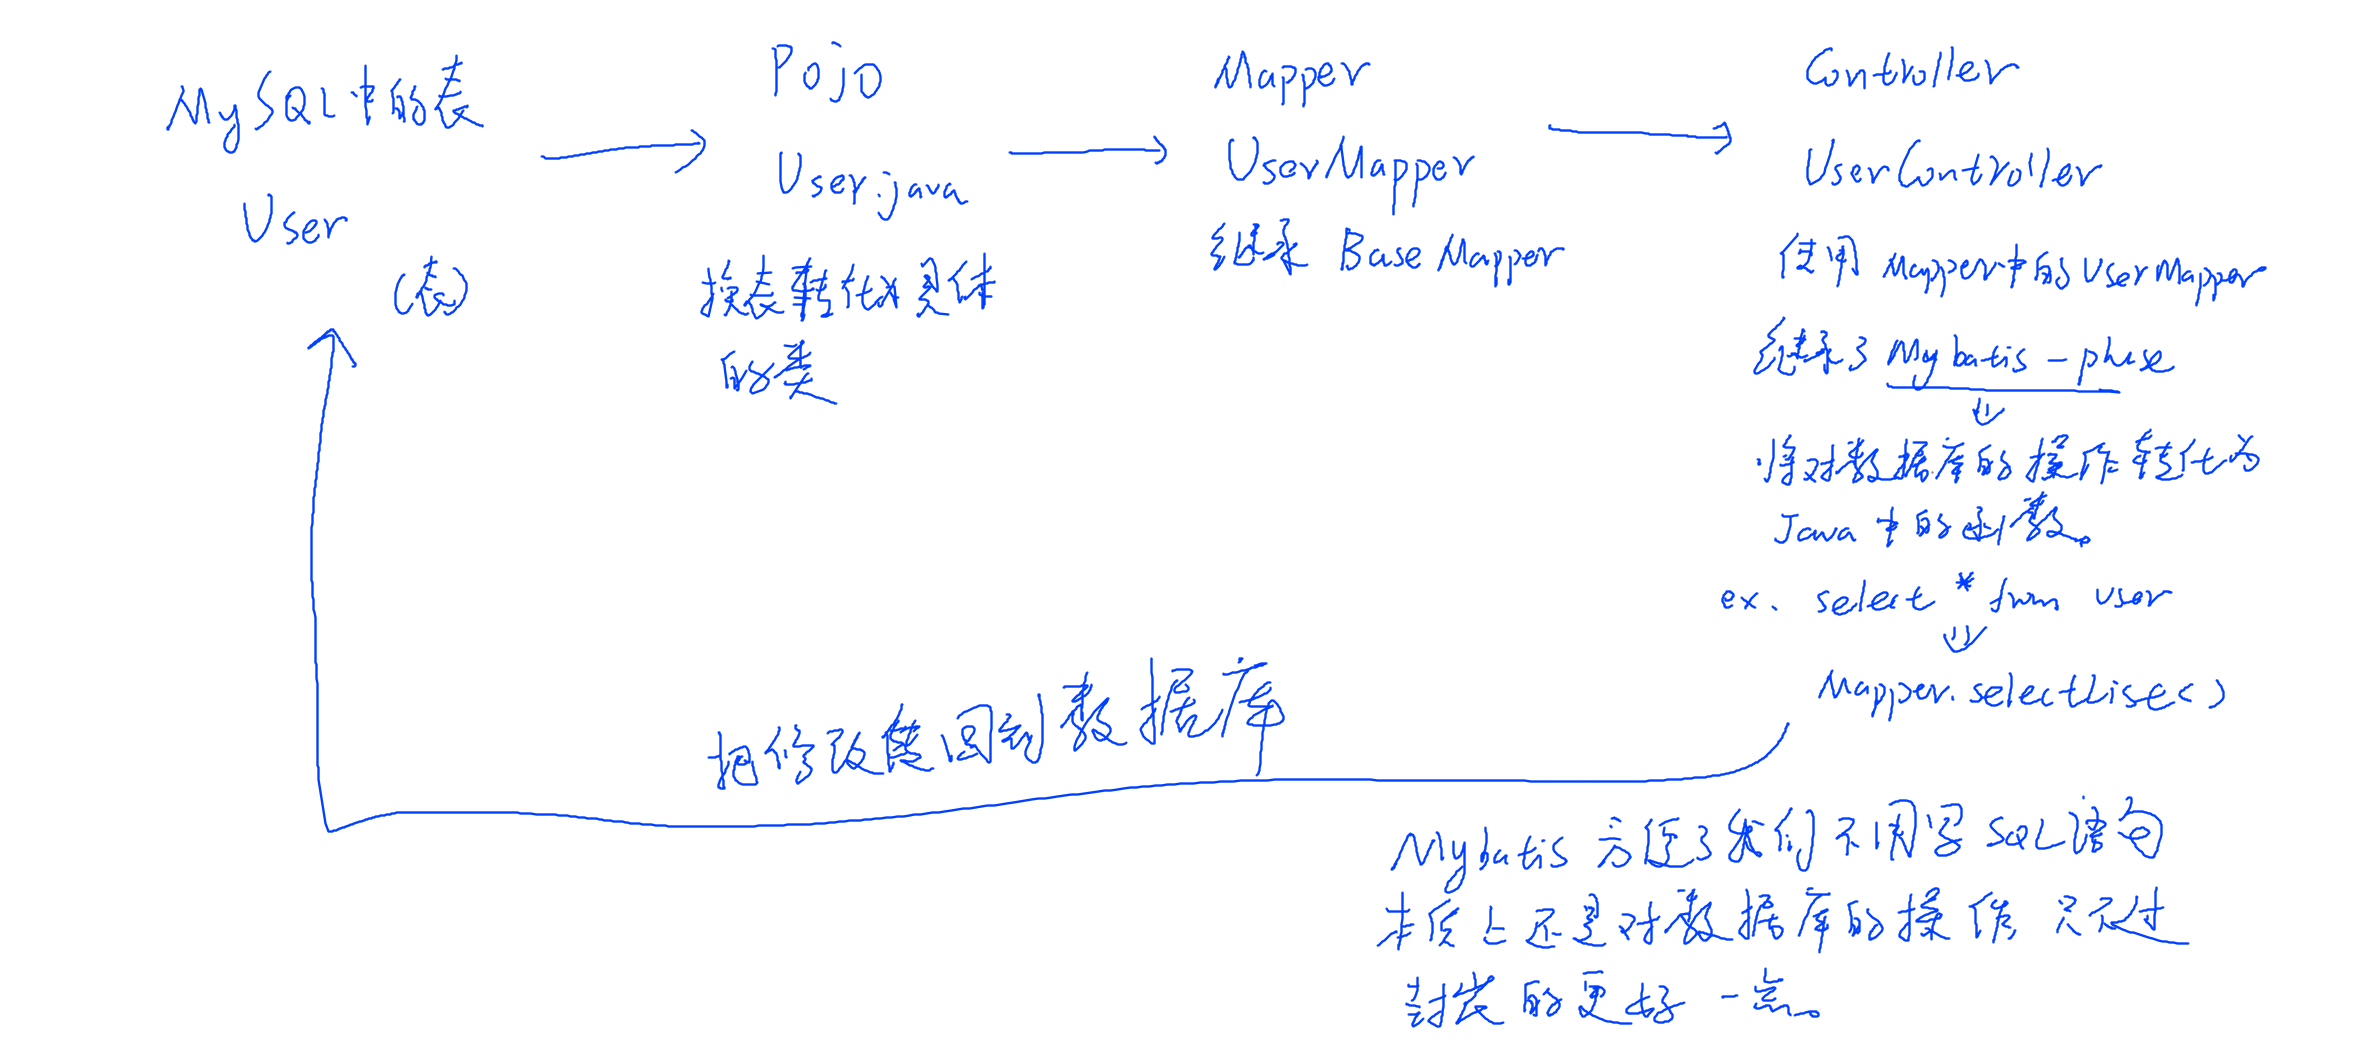 MySQL中的表
User
(表)
Pojo
User.java
换表转化为具体
的类
Mapper
UserMapper
继承 BaseMapper
Controller
UserController
使用 Mapper中的UserMapper
继承了 Mybatis-pluse
将对数据库的操作转化为
Java中的函数。
ex. select * from user
Mapper.selectList()
把修改传回到数据库
Mybatis 方便了我们不用写SQL语句
本质上还是对数据库的操作,只不过
封装的更好一点。